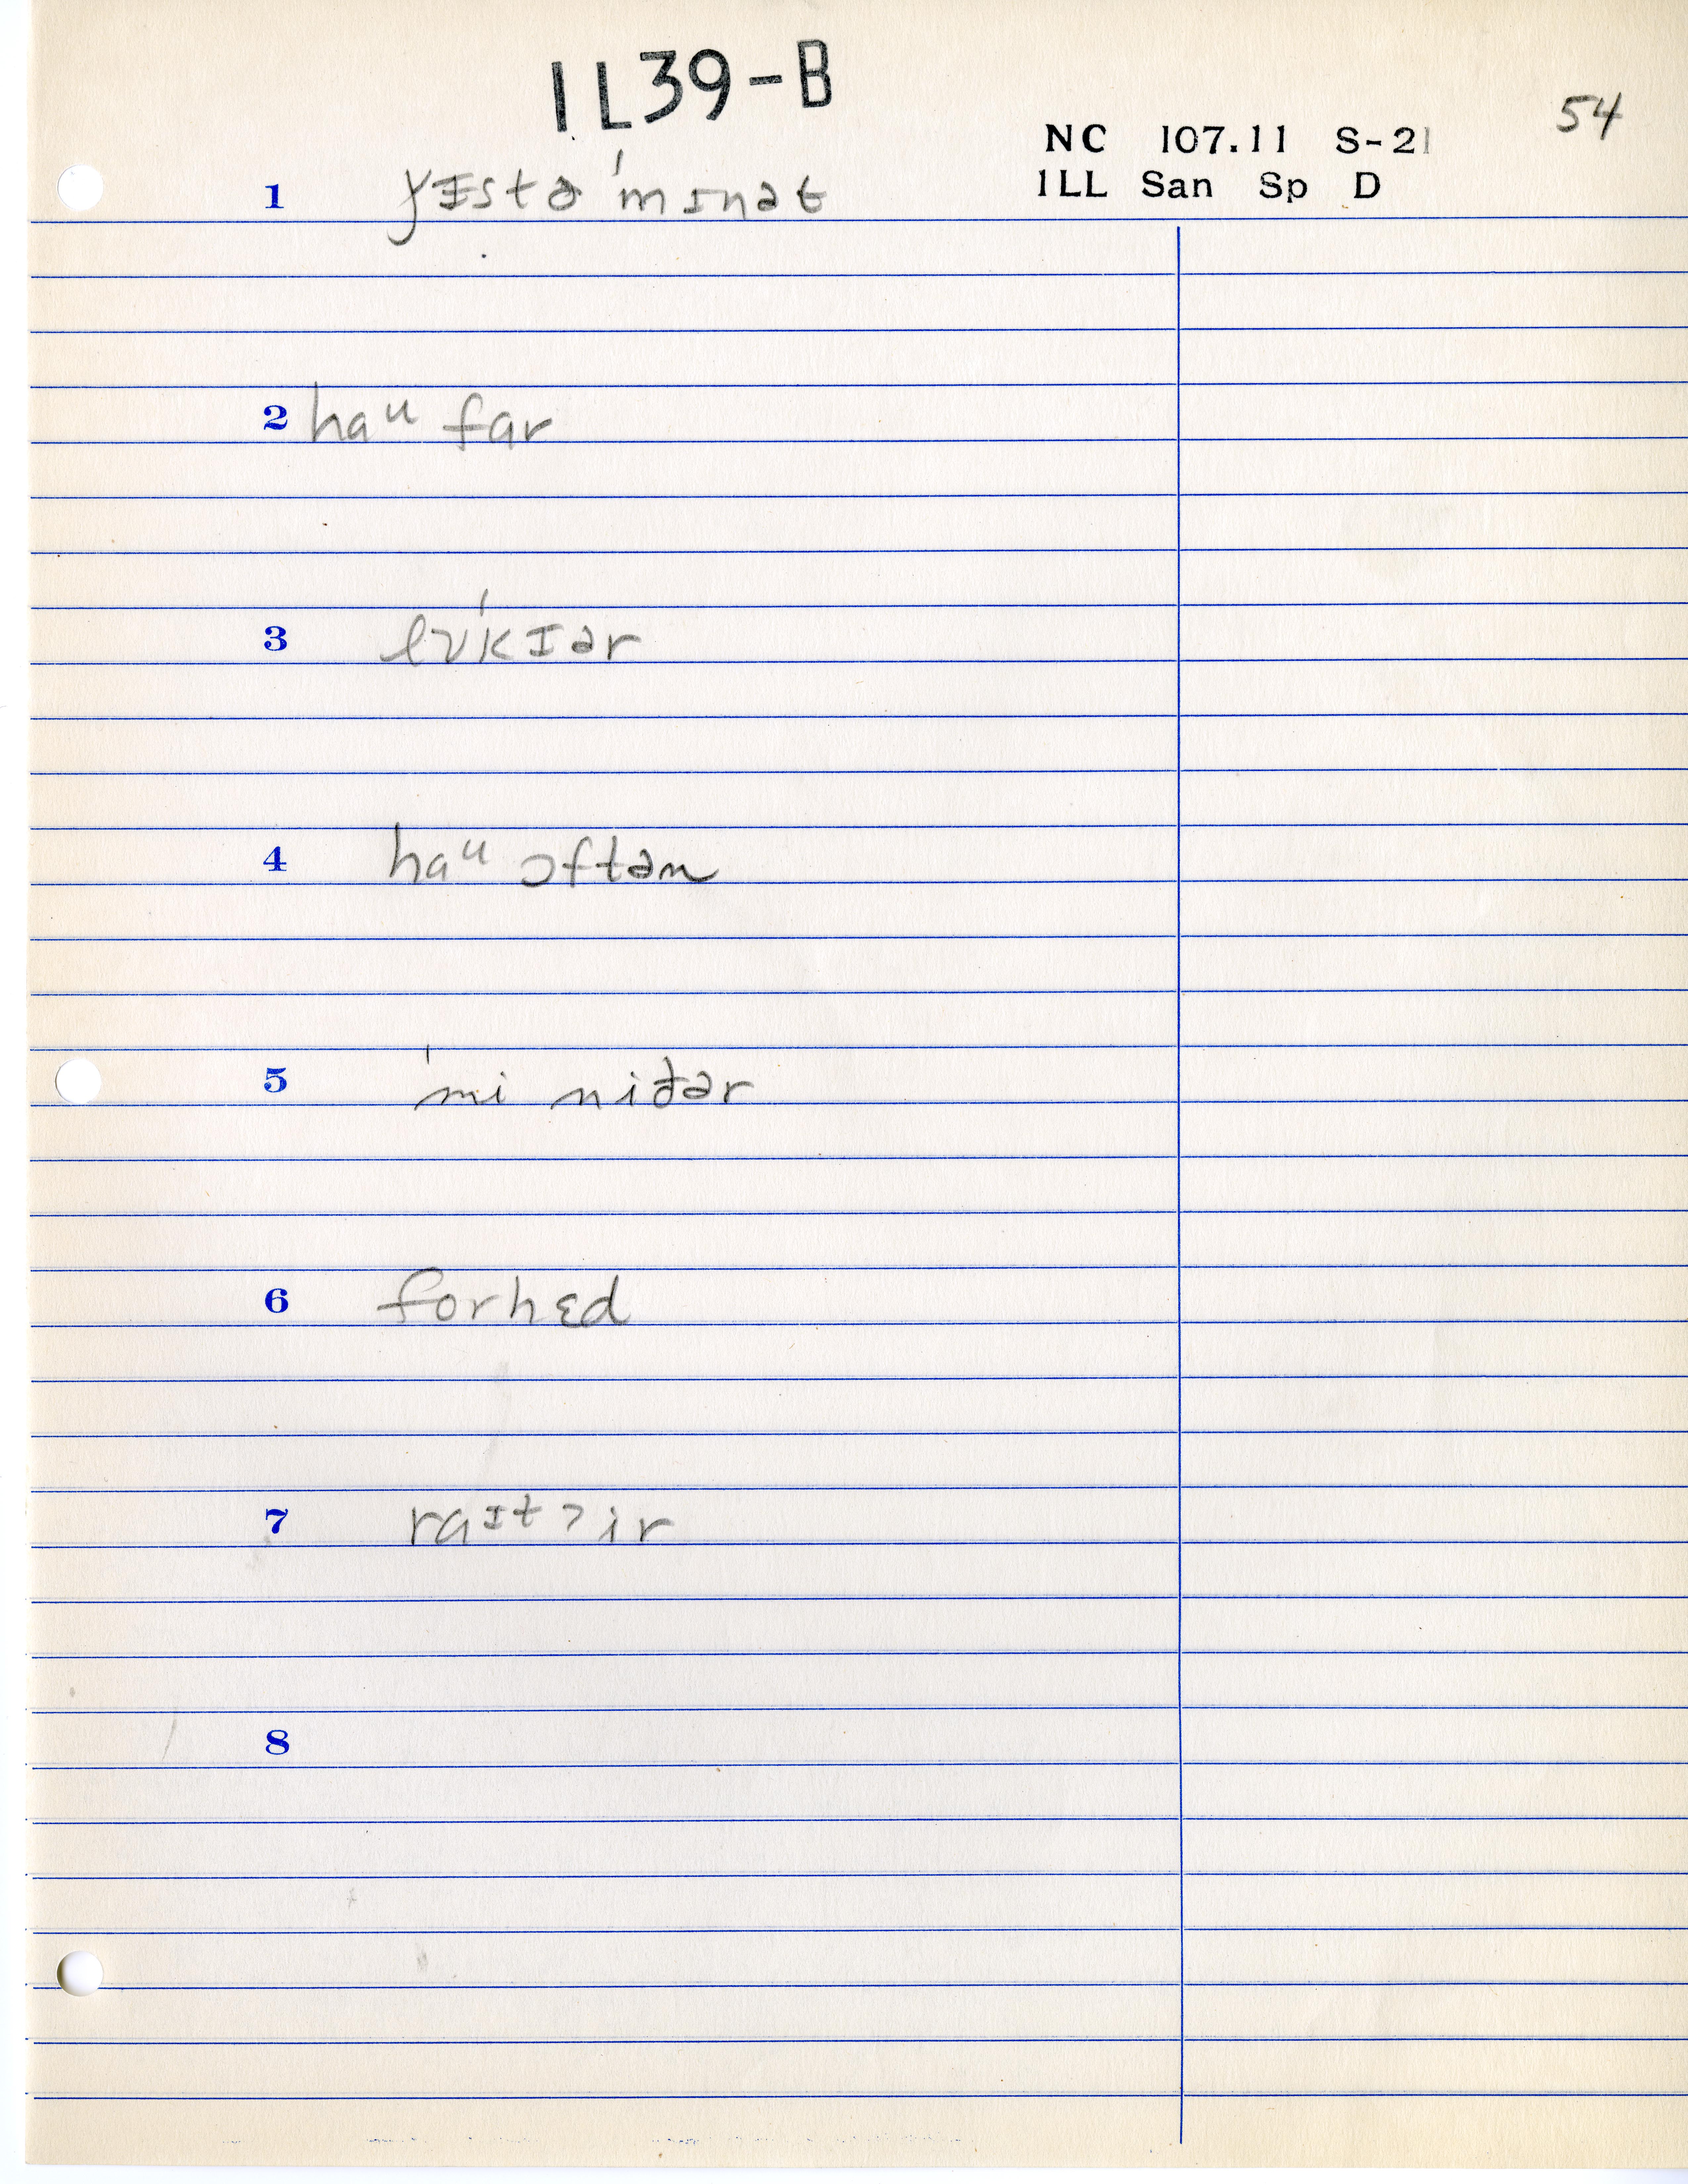 1L39-B
54
NC 107.11 S-21
1LL San Sp D
1 ɣɪstə ˈmɪnət
2 haᵘ far
3 lʊˈkɪər
4 haᵘ ɔftən
5 ˈmi niðər
6 forhɛd
7 raᶦᵗ ʔir
8